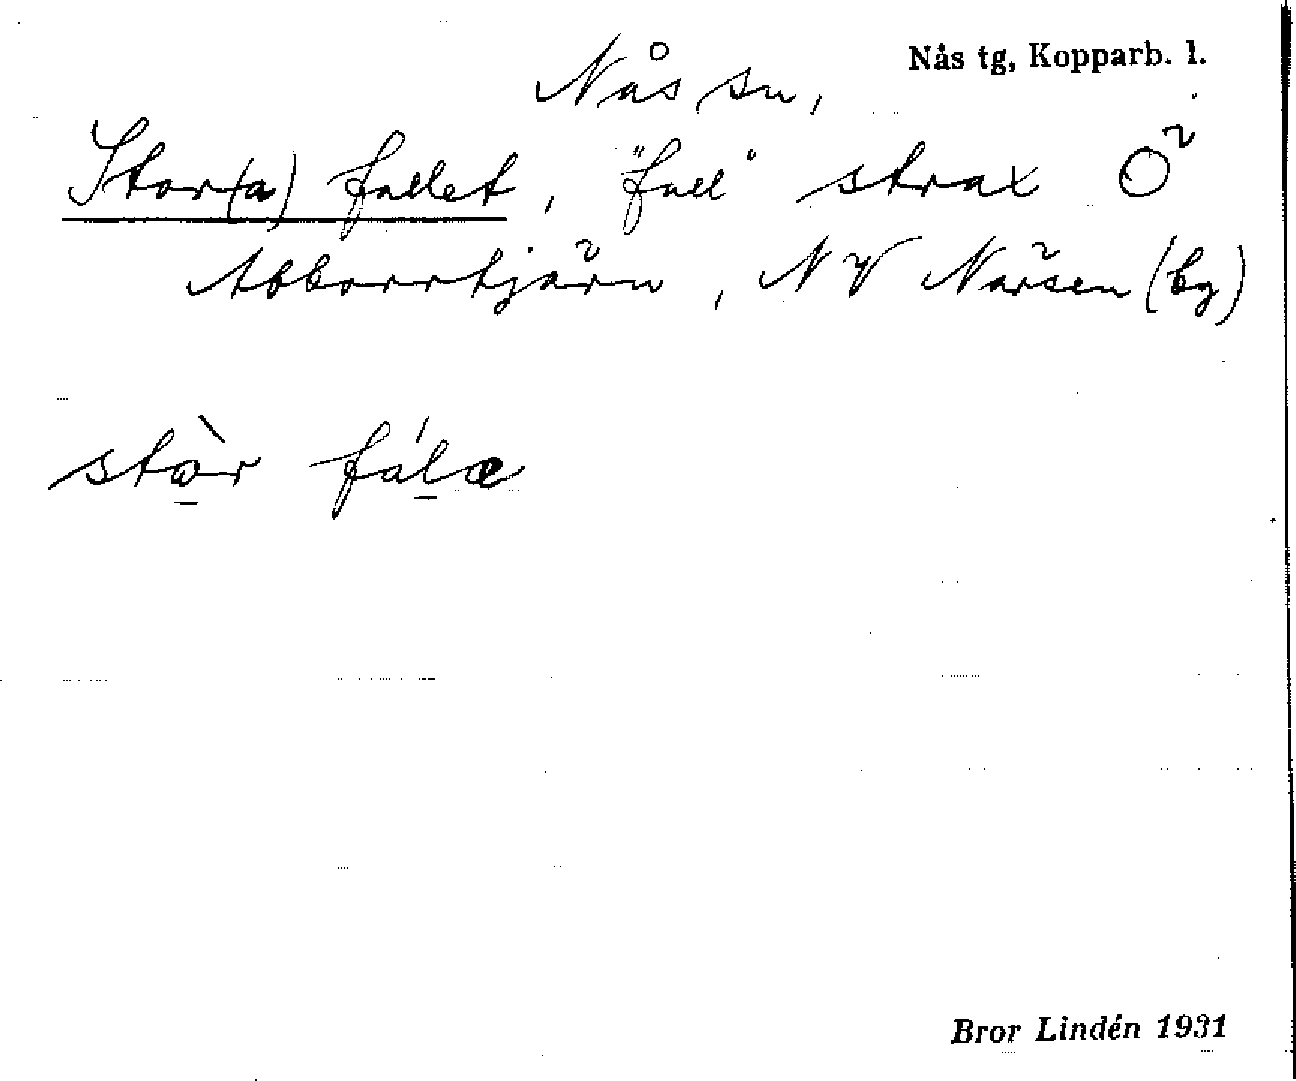 Nås tg, Kopparb. l.
Nås sn,
Stor(a) fallet, "fall" strax Ö
Abborrtjärn, NV Närsen (bg)
stòr fálə
Bror Lindén 1931